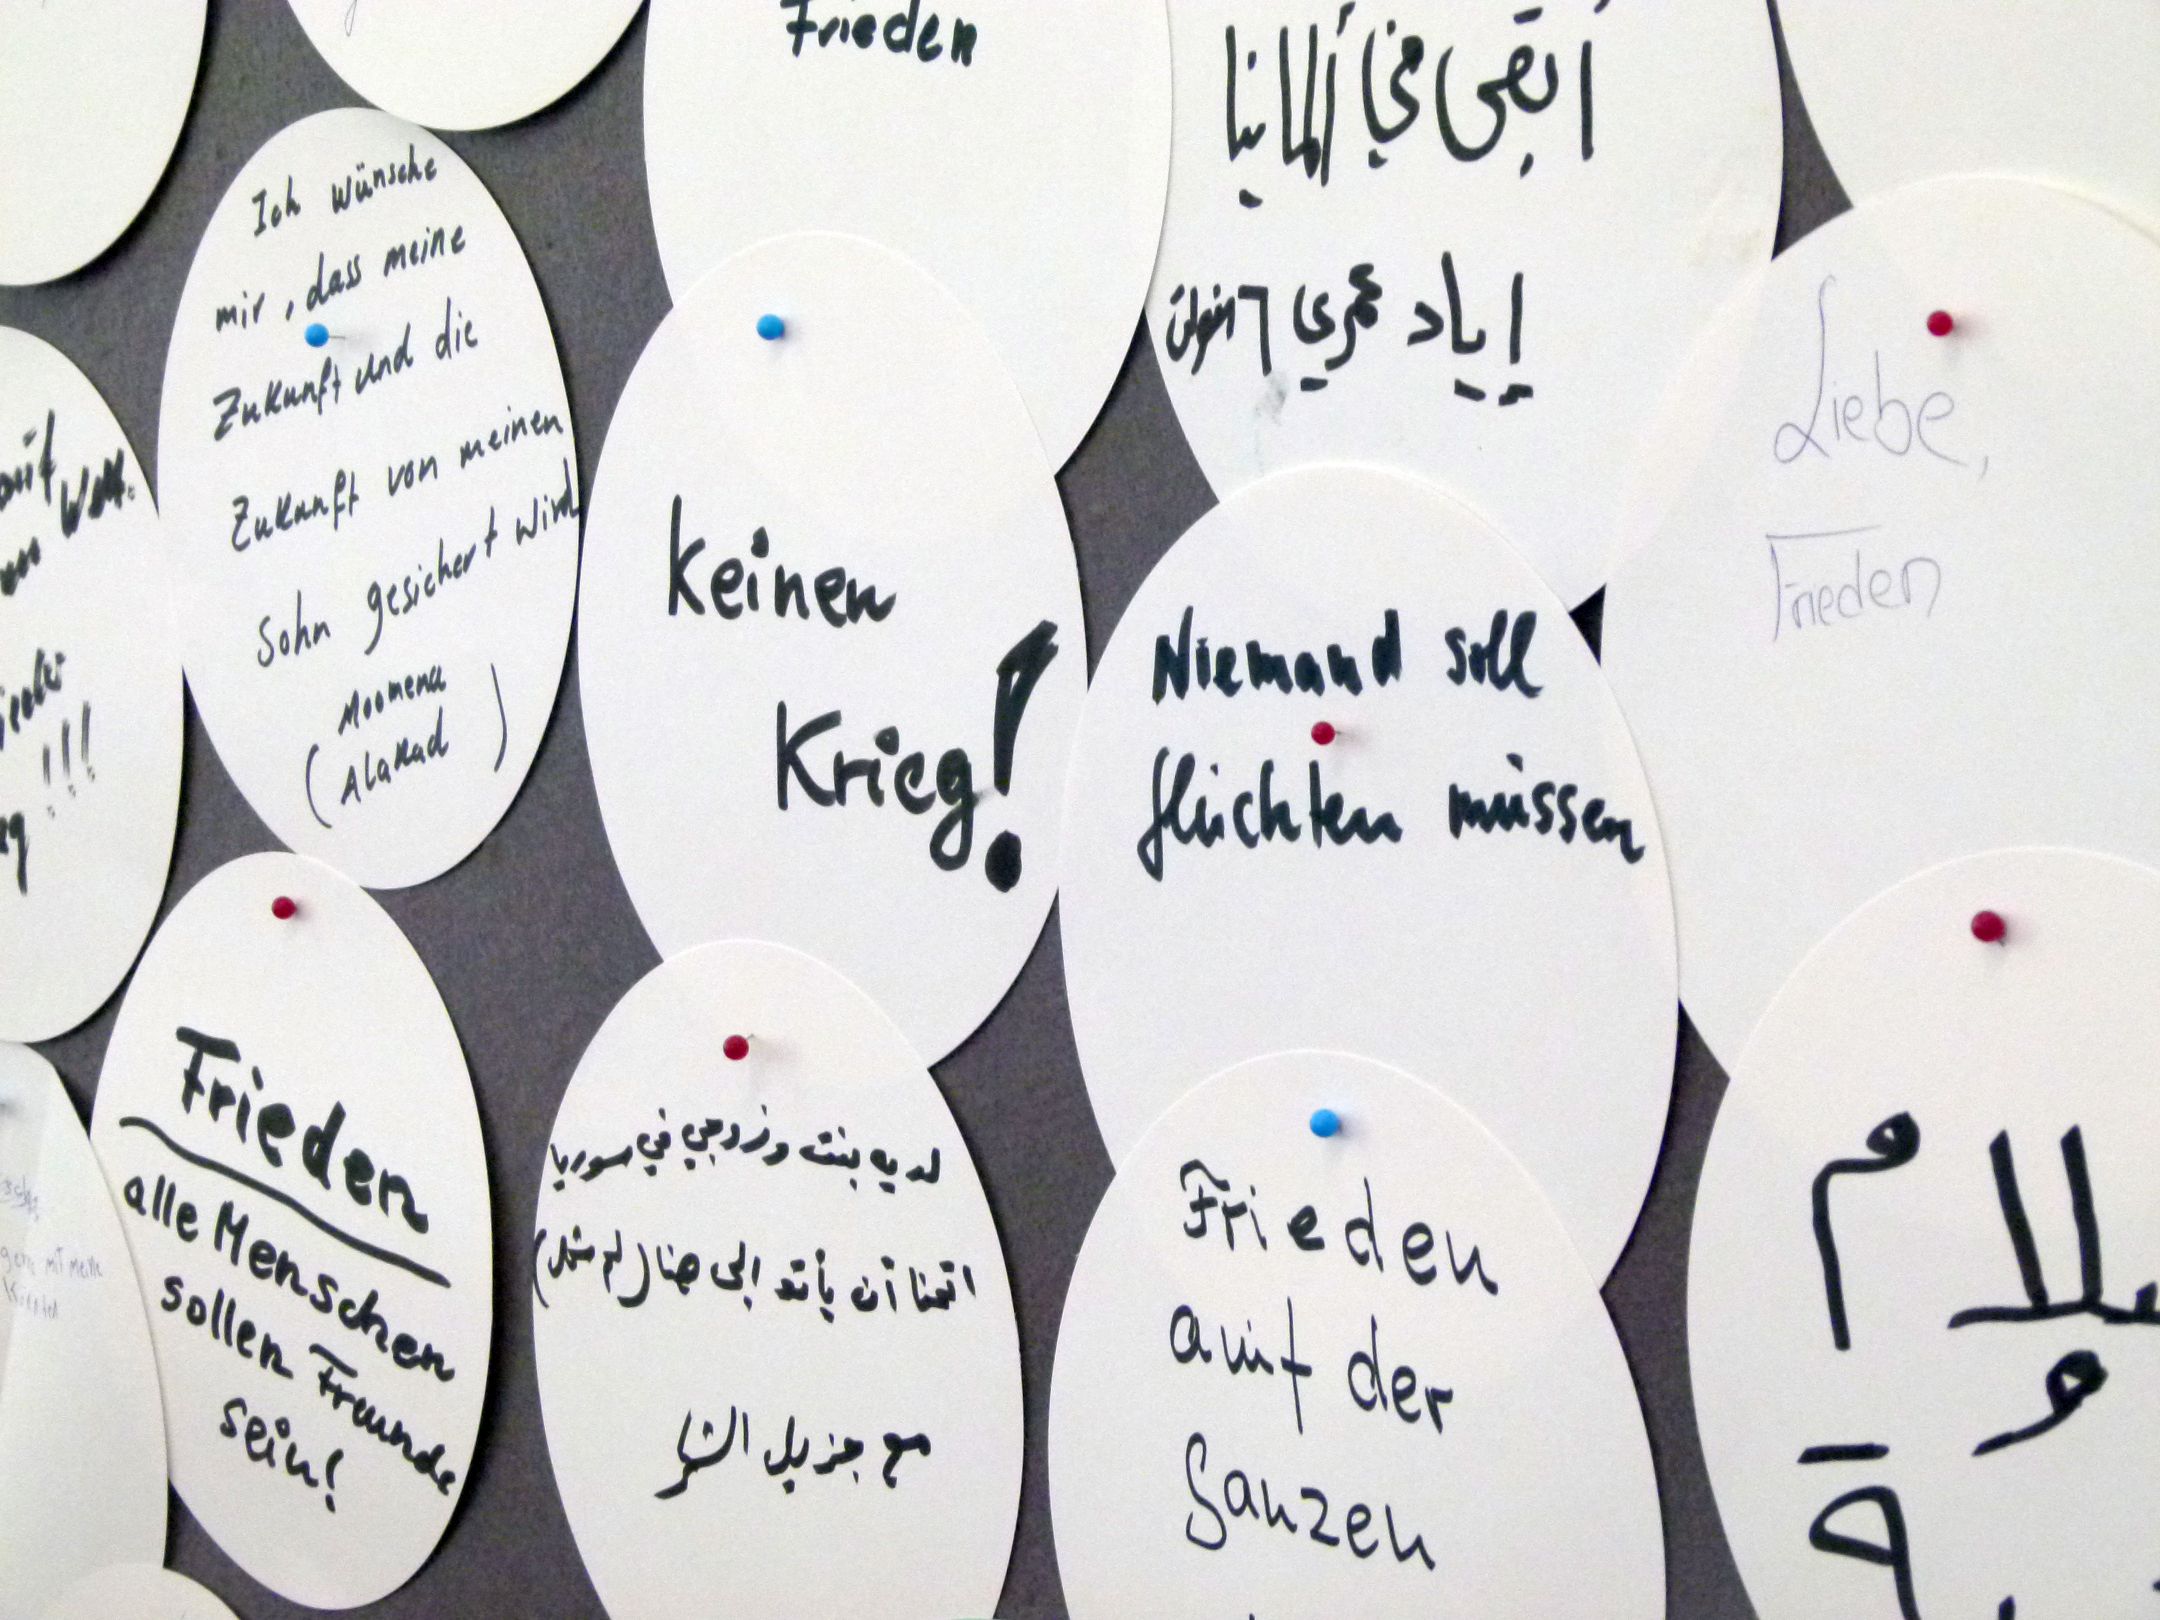 Frieden
أبقى في ألمانيا
إياد عمري ٦
Ich wünsche
mir, dass meine
Zukunft und die
Zukunft von meinen
Sohn gesichert wird
(Moomena
Alakad)
keinen
Krieg!
Niemand soll
flüchten müssen
Liebe,
Frieden
auf
!!!
Frieden
alle Menschen
sollen Freunde
sein!
لديه بنت وزوجي في سوريا
اتمنا أن يأتو إلى هنا (لم شمل)
مع جزيل الشكر
Frieden
auf der
Ganzen
سلام
و
gern mit meine